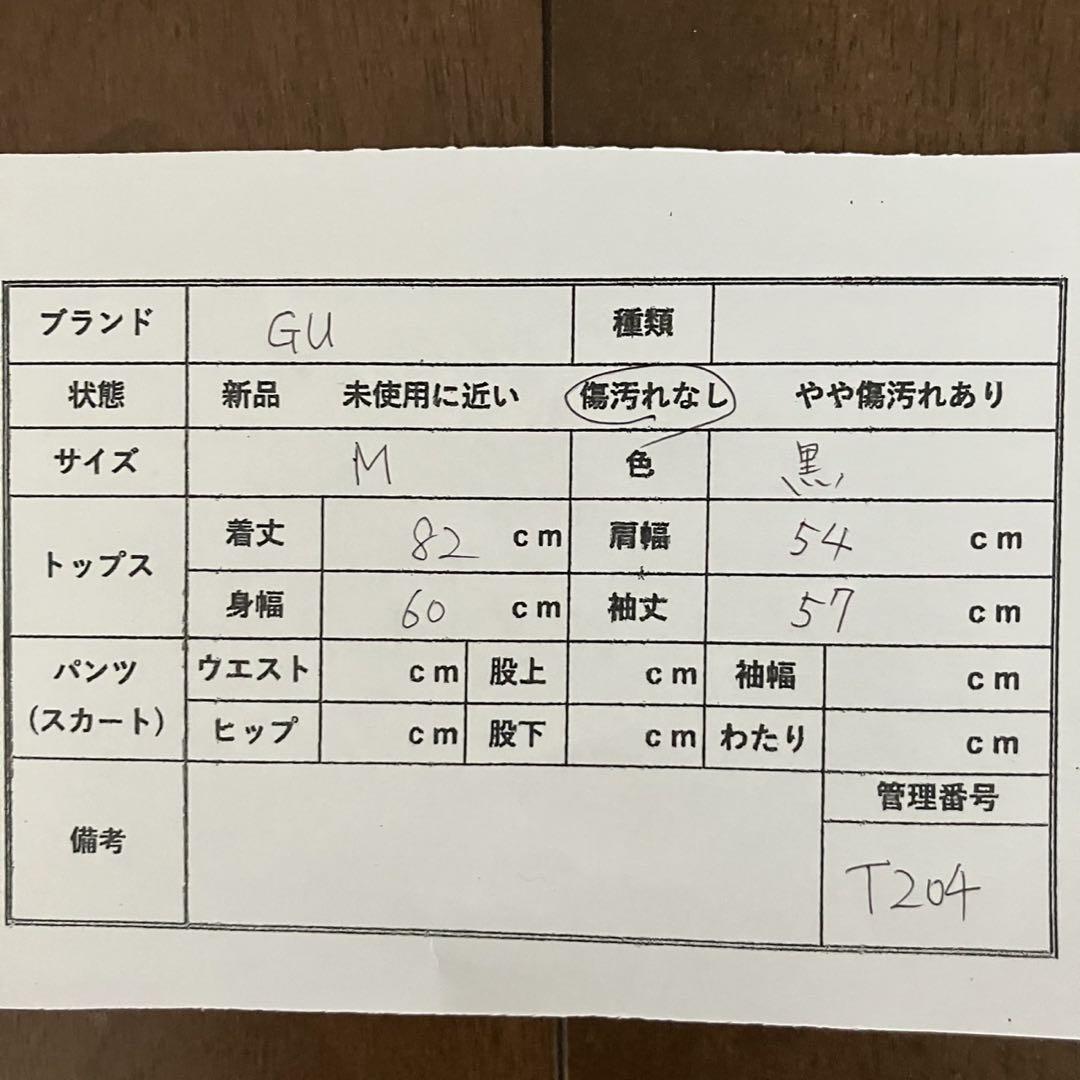 ブランド GU 種類
状態 新品 未使用に近い 傷汚れなし やや傷汚れあり
サイズ M 色 黒
トップス 着丈 82 cm 肩幅 54 cm
身幅 60 cm 袖丈 57 cm
パンツ ウエスト cm 股上 cm 袖幅 cm
(スカート) ヒップ cm 股下 cm わたり cm
備考 管理番号
T204